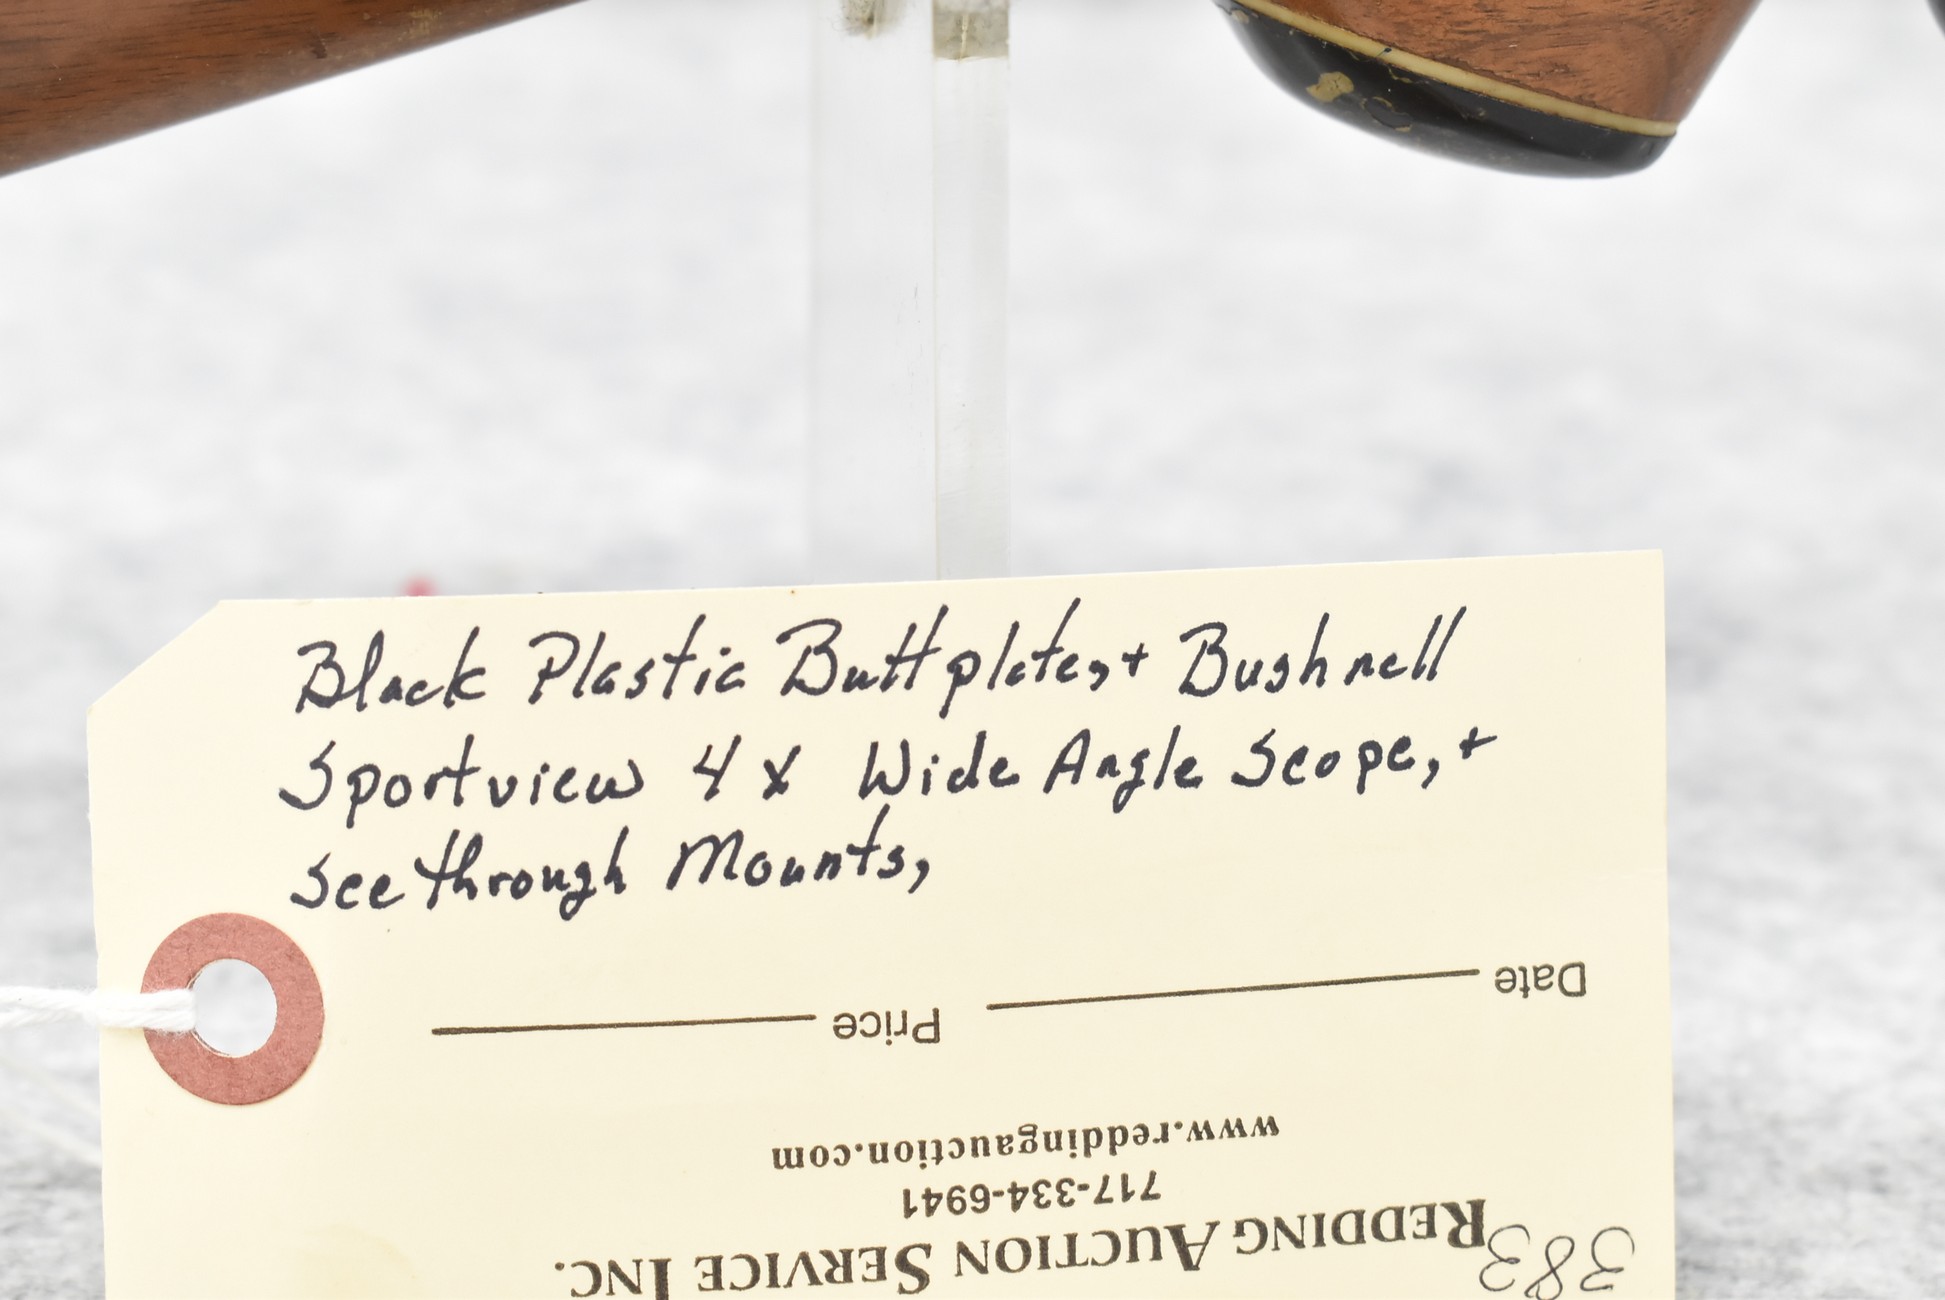 Black Plastic Buttplate, + Bushnell
Sportview 4x Wide Angle Scope, +
See through Mounts,
383
REDDING AUCTION SERVICE INC.
717-334-6941
www.reddingauction.com
Date Price